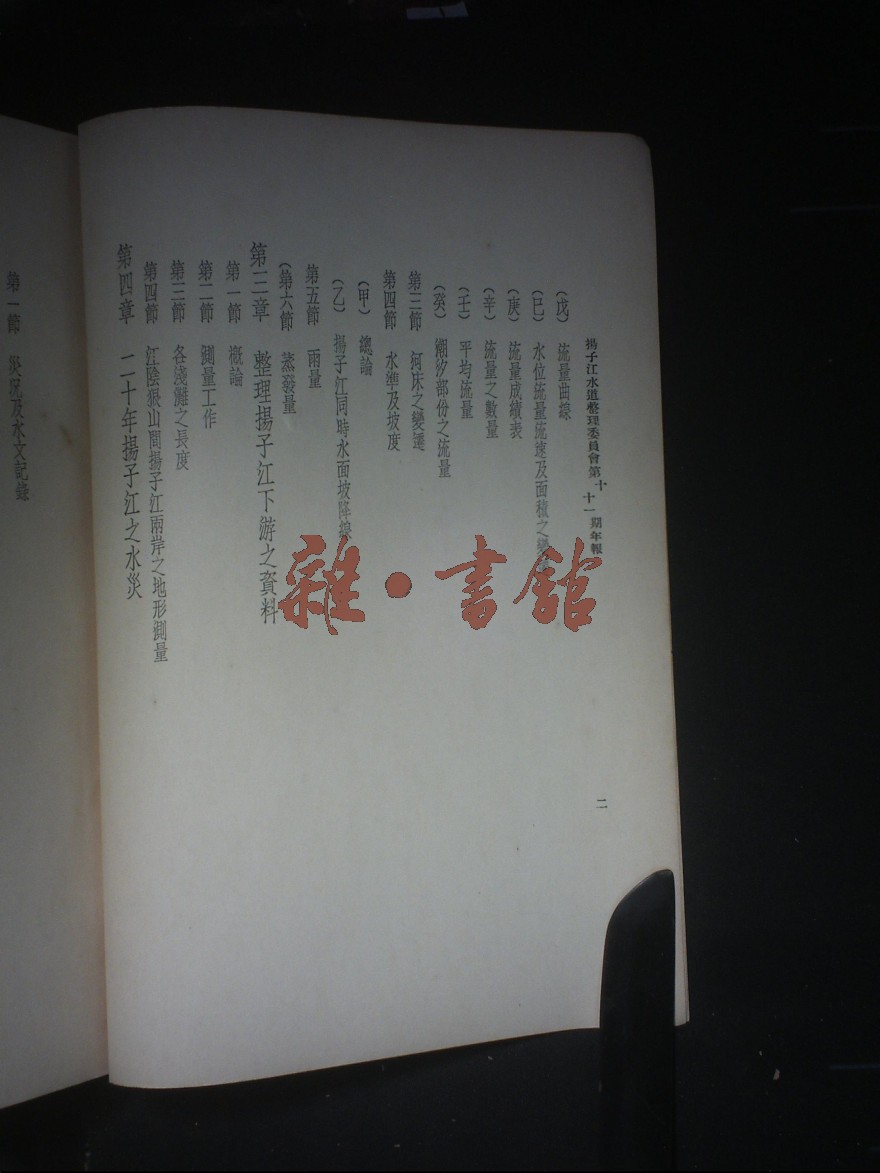 揚子江水道整理委員會第十 十一期年報
二
(戊) 流量曲線
(已) 水位流量流速及面積之變
(庚) 流量成績表
(辛) 流量之數量
(壬) 平均流量
(癸) 潮汐部份之流量
第三節 河床之變遷
第四節 水準及坡度
(甲) 總論
(乙) 揚子江同時水面坡降線
第五節 雨量
(第六節 蒸發量
第三章 整理揚子江下游之資料
第一節 概論
第二節 測量工作
第三節 各淺灘之長度
第四節 江陰狼山間揚子江兩岸之地形測量
第四章 二十年揚子江之水災
第一節 災況及水文記錄
雜·書館